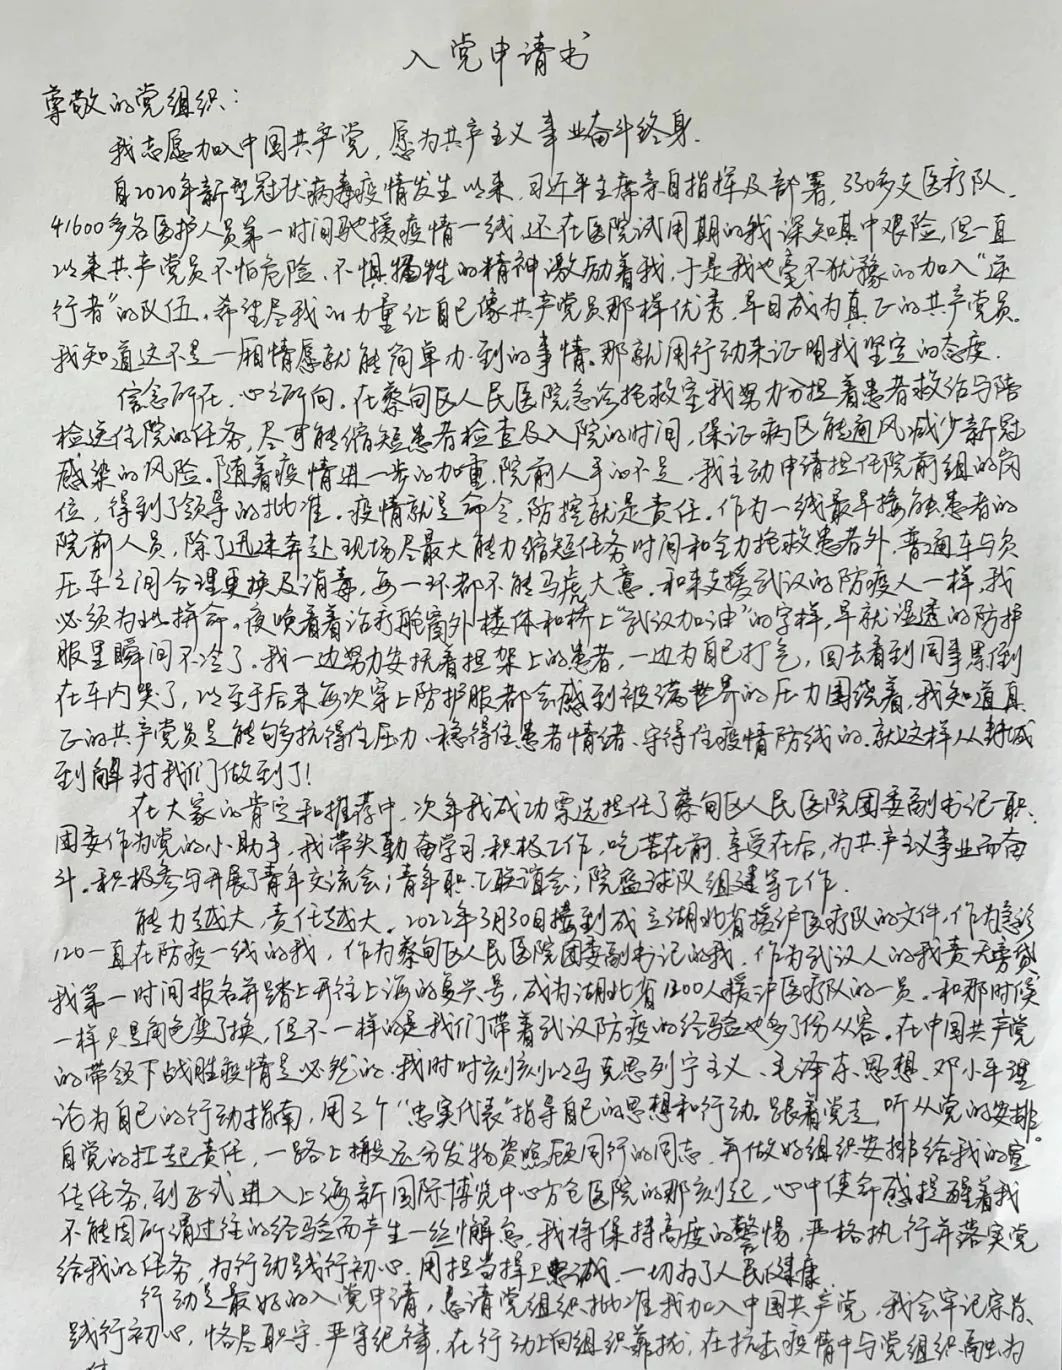 入党申请书
尊敬的党组织：
我志愿加入中国共产党，愿为共产主义事业奋斗终身。
自2020年新型冠状病毒疫情发生以来，习近平主席亲自指挥及部署，330多支医疗队，
41600多名医护人员第一时间驰援疫情一线，还在医院试用期的我深知其中艰险，但一直
以来共产党员不怕危险、不惧牺牲的精神激励着我，于是我也毫不犹豫的加入“逆
行者”的队伍。希望尽我的力量让自己像共产党员那样优秀，早日成为真正的共产党员。
我知道这不是一厢情愿就能简单办到的事情。那就用行动来证明我坚定的态度。
信念所在，心之所向。在蔡甸区人民医院急诊抢救室我努力分担着患者救治与陪
检送住院的任务，尽可能缩短患者检查及入院的时间，保证病区能通风减少新冠
感染的风险。随着疫情进一步的加重，院前人手的不足，我主动申请担任院前组的岗
位，得到了领导的批准。疫情就是命令，防控就是责任。作为一线最早接触患者的
院前人员，除了迅速奔赴现场尽最大能力缩短任务时间和全力抢救患者外，普通车与负
压车之间合理更换及消毒，每一环都不能马虎大意。和来支援武汉的防疫人一样，我
必须为此拼命。夜晚看着治疗舱窗外楼体和桥上“武汉加油”的字样，早就湿透的防护
服里瞬间不冷了。我一边努力安抚着担架上的患者，一边为自己打气，回去看到同事累倒
在车内哭了，以至于后来每次穿上防护服都会感到被满世界的压力围绕着，我知道真
正的共产党员是能够抗得住压力、稳得住患者情绪、守得住疫情防线的，就这样从封城
到解封我们做到了！
在大家的肯定和推荐中，次年我成功票选担任了蔡甸区人民医院团委副书记一职，
团委作为党的小助手，我带头勤奋学习，积极工作，吃苦在前，享受在后，为共产主义事业而奋
斗。积极参与开展了青年交流会；青年职工联谊会；院篮球队组建等工作。
能力越大，责任越大。2022年3月30日接到成立湖北省援沪医疗队的文件，作为急诊
120一直在防疫一线的我，作为蔡甸区人民医院团委副书记的我，作为武汉人的我责无旁贷，
我第一时间报名并踏上开往上海的复兴号，成为湖北省1200人援沪医疗队的一员。和那时候
一样只是角色变了换，但不一样的是我们带着武汉防疫的经验也多了份从容。在中国共产党
的带领下战胜疫情是必然的。我时时刻刻以马克思列宁主义、毛泽东思想、邓小平理
论为自己的行动指南，用三个“忠实代表”指导自己的思想和行动。跟着党走，听从党的安排。
自觉的扛起责任，一路上搬运分发物资照顾同行的同志，并做好组织安排给我的宣
传任务，到正式进入上海新国际博览中心方仓医院的那刻起，心中使命感提醒着我
不能因所谓过往的经验而产生一丝懈怠。我将保持高度的警惕，严格执行并落实党
给我的任务，为行动践行初心，用担当捍卫忠诚，一切为了人民健康。
行动是最好的入党申请，恳请党组织批准我加入中国共产党，我会牢记宗旨、
践行初心，恪尽职守，严守纪律，在行动上向组织靠拢，在抗击疫情中与党组织融为
一体